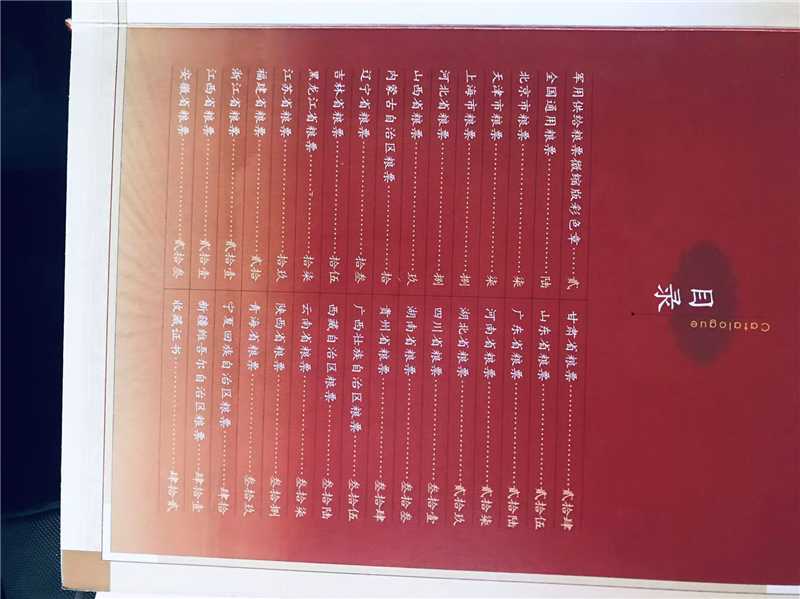 目录
Catalogue
军用供给粮票微缩版彩色章……贰
全国通用粮票……陆
北京市粮票……柒
天津市粮票……柒
上海市粮票……捌
河北省粮票……捌
山西省粮票……玖
内蒙古自治区粮票……拾
辽宁省粮票……拾叁
吉林省粮票……拾伍
黑龙江省粮票……拾柒
江苏省粮票……拾玖
福建省粮票……贰拾
浙江省粮票……贰拾壹
江西省粮票……贰拾壹
安徽省粮票……贰拾叁
甘肃省粮票……贰拾肆
山东省粮票……贰拾伍
广东省粮票……贰拾陆
河南省粮票……贰拾柒
湖北省粮票……贰拾玖
四川省粮票……叁拾壹
湖南省粮票……叁拾叁
贵州省粮票……叁拾肆
广西壮族自治区粮票……叁拾伍
西藏自治区粮票……叁拾陆
云南省粮票……叁拾柒
陕西省粮票……叁拾捌
青海省粮票……叁拾玖
宁夏回族自治区粮票……肆拾
新疆维吾尔自治区粮票……肆拾壹
收藏证书……肆拾贰